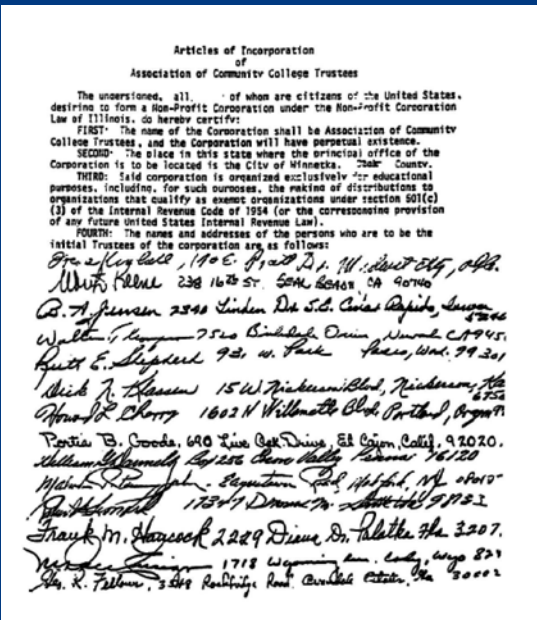 Articles of Incorporation
of
Association of Community College Trustees
The undersigned, all, of whom are citizens of the United States,
desiring to form a Non-Profit Corporation under the Non-Profit Corporation
Law of Illinois, do hereby certify:
FIRST: The name of the Corporation shall be Association of Community
College Trustees, and the Corporation will have perpetual existence.
SECOND: The place in this state where the principal office of the
Corporation is to be located is the City of Winnetka, County.
THIRD: Said corporation is organized exclusively for educational
purposes, including, for such purposes, the making of distributions to
organizations that qualify as exempt organizations under section 501(c)
(3) of the Internal Revenue Code of 1954 (or the corresponding provision
of any future United States Internal Revenue Law).
FOURTH: The names and addresses of the persons who are to be the
initial Trustees of the corporation are as follows:
Dr. Midwest City,
238 16th St. SEAL BEACH, CA 90740
B. A. Jensen 2340 Linden Dr. S.E. Cedar Rapids, Iowa
Walter 7520 Drive, Newark CA 945
E. Shepherd 93 W. Park Pasco, Wa. 99301
Dick N. Klassen 15 W. Nickerson Blvd, Nickerson, Ka
Howard L. Cherry 1602 N Willamette Blvd. Portland, Oregon
Portia B. Goode, 690 Live Oak Drive, El Cajon, Calif. 92020.
William Box 256 Valley Penna 16120
Road,
17347
Frank M. Haycock 2229 Diana Dr. Palatka Fla 3207
1718 Wyoming Ave. Cody, Wyo 82
Geo. K. Rockbridge Road Avondale Estates, Ga 30002